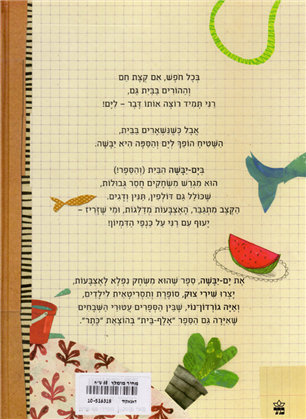 בְּכָל חֹפֶשׁ, אִם קְצָת חַם
וְהַהוֹרִים בַּבַּיִת גַּם,
רֵנִי תָּמִיד רוֹצָה אוֹתוֹ דָּבָר – לַיָּם!
אֲבָל כְּשֶׁנִּשְׁאָרִים בַּבַּיִת,
הַשָּׁטִיחַ הוֹפֵךְ לְיָם וְהַסַּפָּה הִיא יַבָּשָׁה.
בְּיָם-יַבָּשָׁה הַבַּיִת (וְהַסֵּפֶר!)
הוּא מִגְרַשׁ מִשְׂחָקִים חֲסַר גְּבוּלוֹת,
שֶׁכּוֹלֵל גַּם דּוֹלְפִין, תַּנִּין וְדָגִים.
הַקֶּצֶב מִתְגַּבֵּר, הָאֶצְבָּעוֹת מְדַלְּגוֹת, וּמִי שֶׁזָּרִיז –
יָעוּף עִם רֵנִי עַל כַּנְפֵי הַדִּמְיוֹן!
אֶת יָם-יַבָּשָׁה, סֵפֶר שֶׁהוּא מִשְׂחָק נִפְלָא לָאֶצְבָּעוֹת,
יָצְרוּ שִׁירִי צוּק, סוֹפֶרֶת וְתַסְרִיטָאִית לִילָדִים,
וְאַיָּה גּוֹרְדוֹן-נוֹי, שֶׁבֵּין הַסְּפָרִים עֲטוּרֵי הַשְּׁבָחִים
שֶׁאִיְּרָה גַּם הַסֵּפֶר "אָלֶף-בֵּית" בְּהוֹצָאַת "כֶּתֶר".